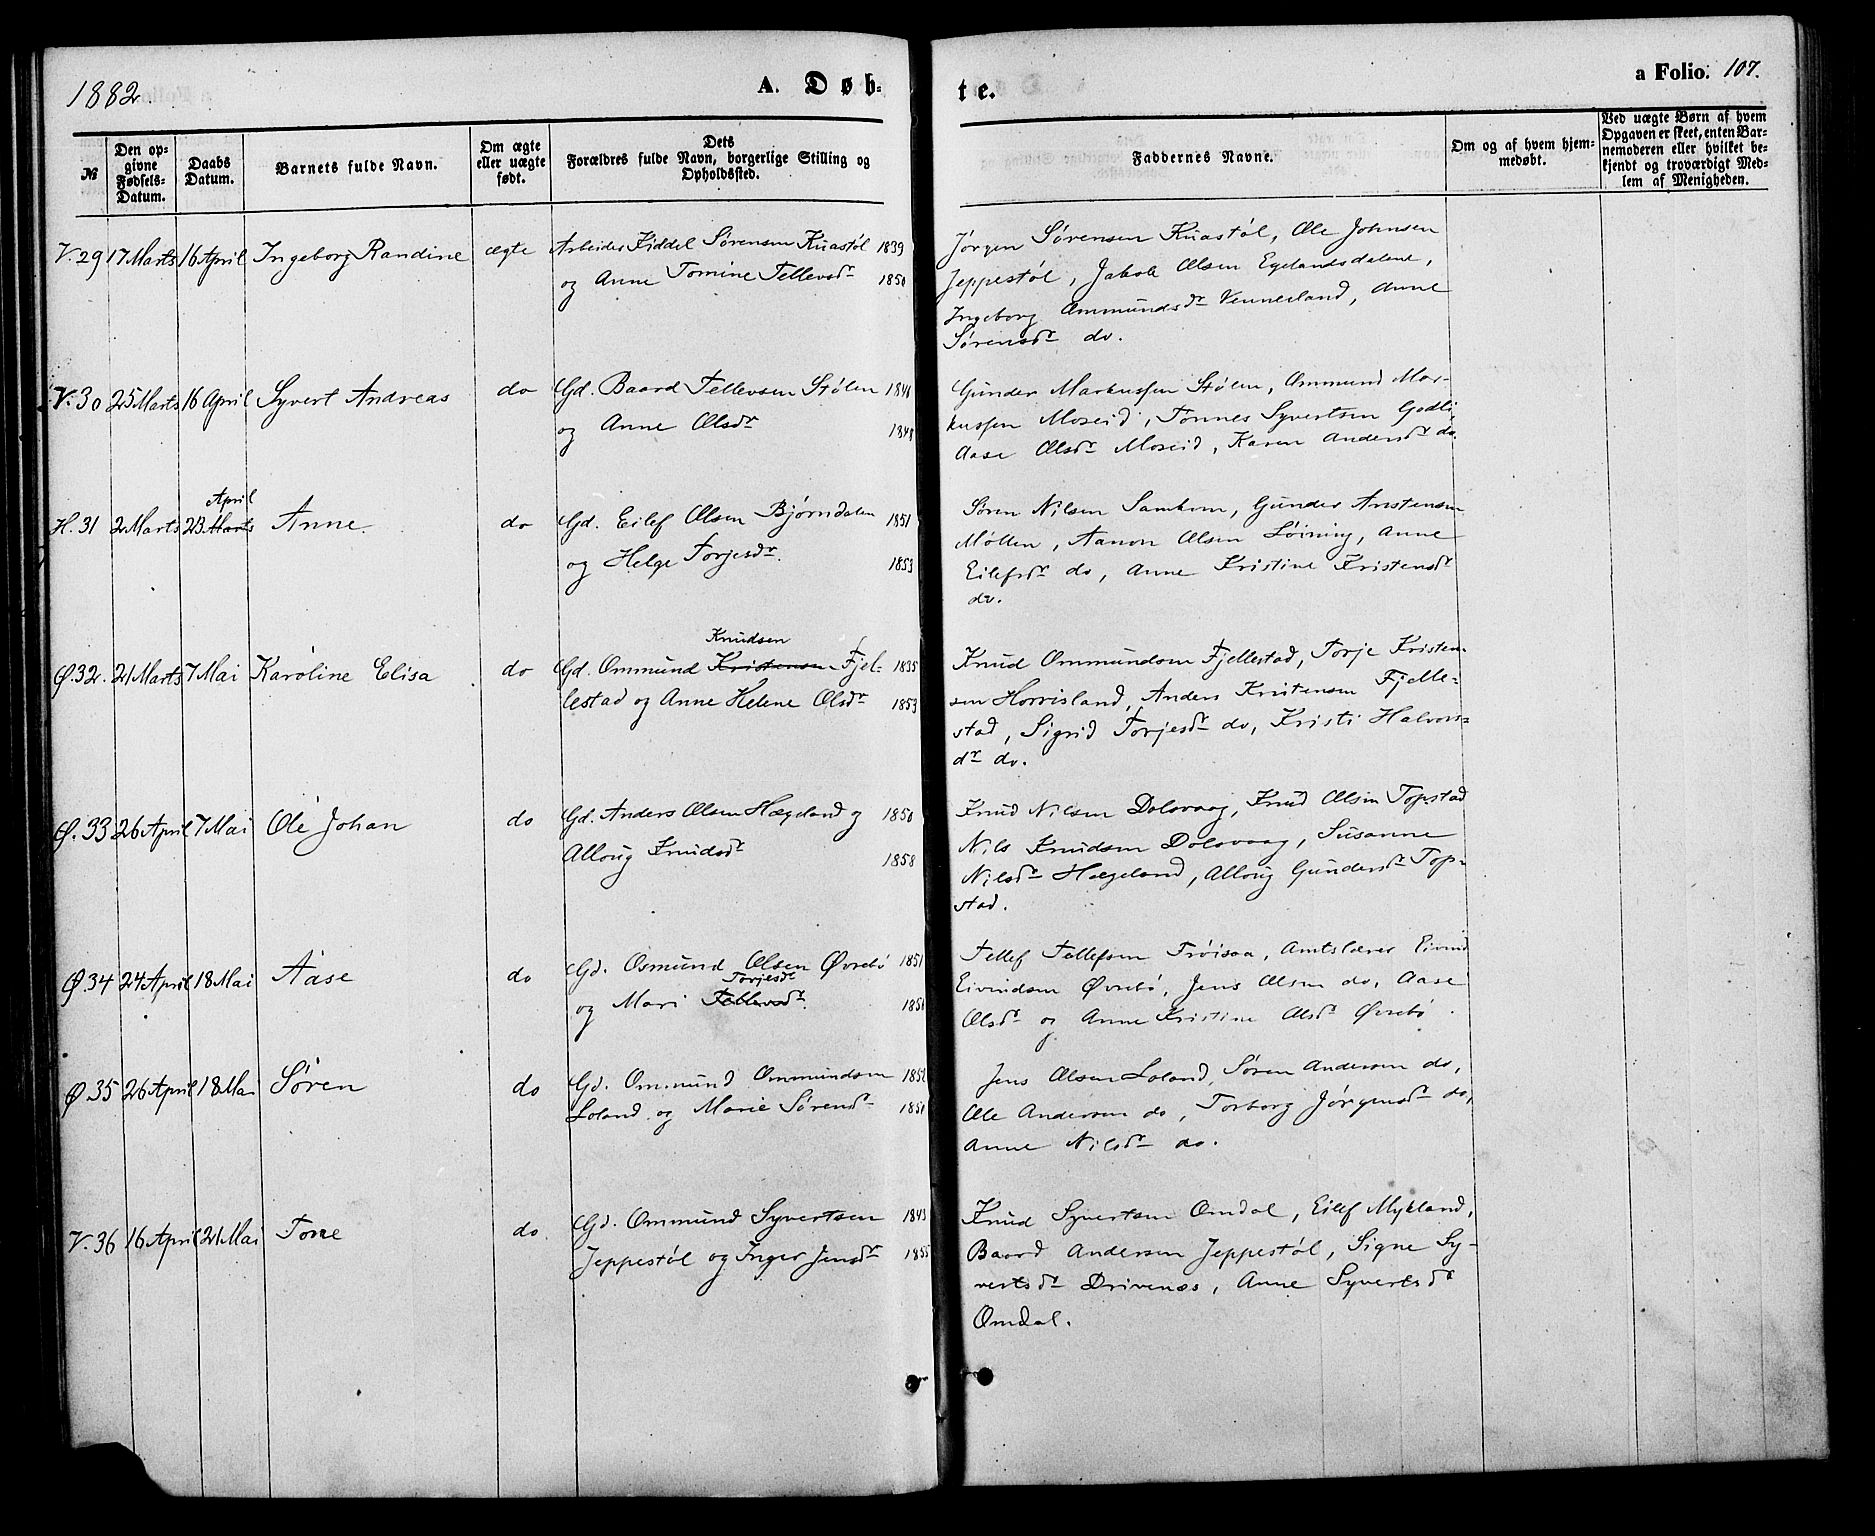 1882.
A. Døb-
te.
a Folio. 107.
№
Den op-
givne
Fødsels-
Datum.
Daabs
Datum.
Barnets fulde Navn.
Om ægte
eller uægte
født.
Dets
Forældres fulde Navn, borgerlige Stilling og
Opholdssted.
Faddernes Navne.
Om og af hvem hjem-
medøbt.
Ved uægte Børn af hvem
Opgaven er skeet, enten Bar-
nemoderen eller hvilket be-
kjendt og troværdigt Med-
lem af Menigheden.
V. 29 17 Marts 16 April Ingeborg Randine ægte Arbeider Fiddel Sørensen Kuastøl 1839
og Anne Tomine Tellevsdr 1850
Jørgen Sørensen Kuastøl, Ole Johnsen
Jeppestøl, Jakob Olsen Egelandsdalene,
Ingeborg Ommundsdr Vennesland, Anne
Sørensdr do.
V. 30 25 Marts 16 April Syvert Andreas do Gd. Baard Tellevsen Stølen 1846
og Anne Olsdr 1848
Gunder Markussen Stølen, Ommund Mar-
kussen Moseid, Tønnes Syvertsen Godli
Aase Olsdr Moseid, Karen Andersdr do.
H. 31 2 Marts 23 April Marts Anne do Gd. Eilef Olsen Bjørndalen 1851
og Helge Torjesdr. 1853
Søren Nilsen Samkom, Gunder Anstensen
Møllen, Aanon Olsen Løining, Anne
Eilefsdr do, Anne Kristine Kristensdr
do.
Ø. 32. 21 Marts 7 Mai Karoline Elisa do Gd. Ommund Kristensen Knudsen Fjel- 1835
lestad og Anne Helene Olsdr 1853
Knud Ommundsen Fjellestad, Torje Kristen-
sen Horrisland, Anders Kristensen Fjelle-
stad, Sigrid Torjesdr do, Kristi Halvors-
dr do.
Ø. 33 26 April 7 Mai Ole Johan do Gd. Anders Olsen Hægeland og 1850
Alloug Knudsdr 1858
Knud Nilsen Dolovaag, Knud Olsen Topstad
Nils Knudsen Dolovaag, Susanne
Nilsdr Hægeland, Alloug Gundersdr Top-
stad.
Ø. 34 24 April 18 Mai Aase do Gd. Osmund Olsen Øvrebø 1851
og Mari Tellevsdr Torjesdr. 1851
Tellef Tellefsen Trøisaa, Amtslærer Eivind
Eivindsen Øvrebø, Jens Olsen do, Aase
Olsdr og Anne Kristine Olsdr Øvrebø.
Ø. 35 26 April 18 Mai Søren do Gd. Ommund Ommundsen 1852
Loland og Marie Sørensdr 1851
Jens Olsen Loland, Søren Andersen do,
Ole Andersen do, Torborg Jørgensdr do,
Anne Nilsdr do.
V. 36 16 April 21 Mai Tone do. Gd. Ommund Syvertsen 1843
Jeppestøl og Inger Jensdr 1855
Knud Syvertsen Omdal, Eilef Mykland,
Baard Andersen Jeppestøl, Signe Sy-
vertsdr Drivenes, Anne Syvertsdr
Omdal.